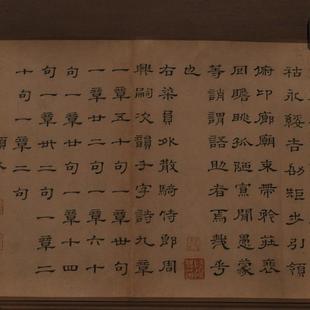 祜永綏吉劭矩步引領
俯仰廊廟束帶矜莊裴
回瞻眺孤陋寡聞愚蒙
等誚謂語助者焉哉乎
也
右梁員外散騎侍郎周
興嗣次韻千字詩九章
一章五十句一章卅句
一章廿二句一章六十
句一章廿二句一章十四
句一章卅二句一章二
十句一章廿二句